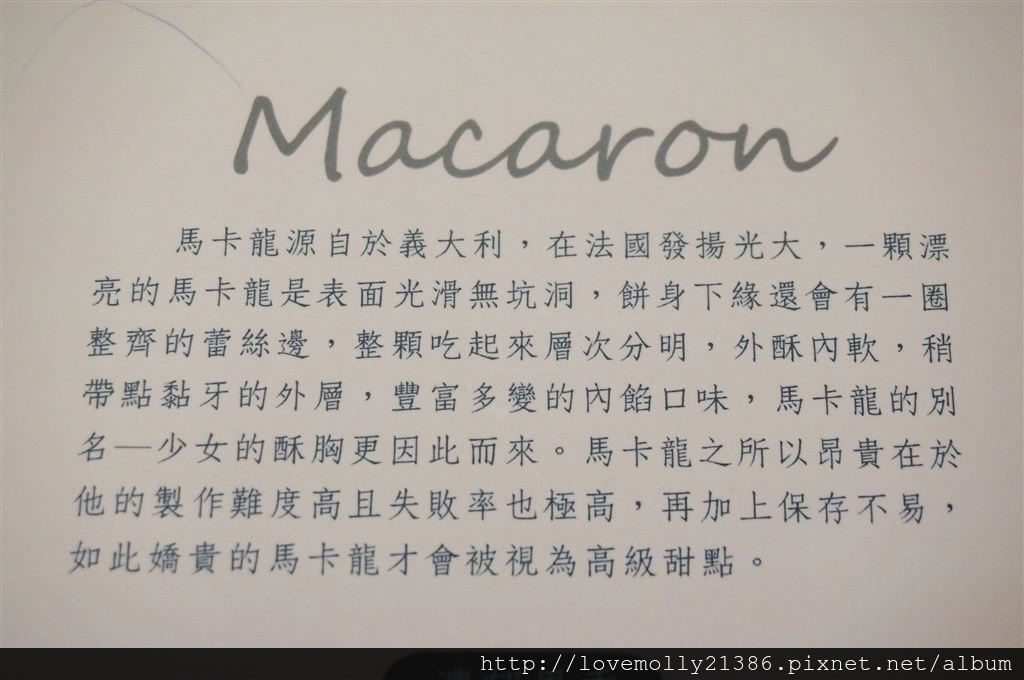 Macaron
馬卡龍源自於義大利，在法國發揚光大，一顆漂
亮的馬卡龍是表面光滑無坑洞，餅身下緣還會有一圈
整齊的蕾絲邊，整顆吃起來層次分明，外酥內軟，稍
帶點黏牙的外層，豐富多變的內餡口味，馬卡龍的別
名─少女的酥胸更因此而來。馬卡龍之所以昂貴在於
他的製作難度高且失敗率也極高，再加上保存不易，
如此嬌貴的馬卡龍才會被視為高級甜點。
http://lovemolly21386.pixnet.net/album